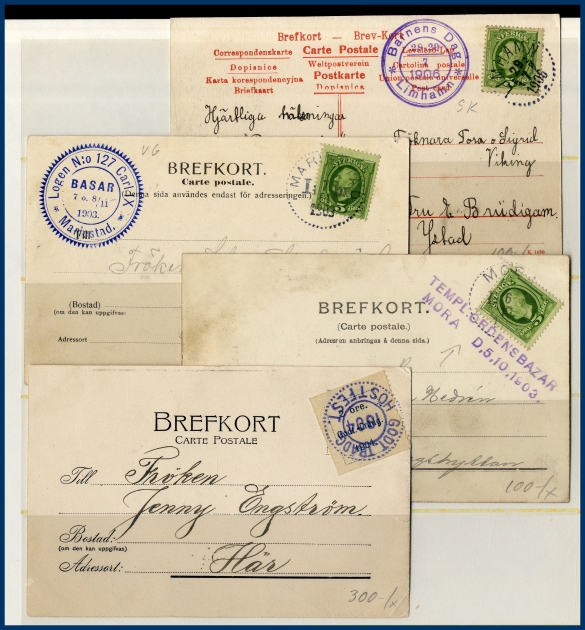 Brefkort — Brev-Kort
Correspondenzkarte Carte Postale Levelező-Lap
Dopisnice Weltpostverein Cartolina postale
Karta korespondencyjna Postkarte Union postale universelle
Briefkaart Dopisnica Post card
Barnens Dag
28-29
7
1906
Limhamn
1906
SK
Hjärtliga hälsningar
Fröknara Tora o Sigrid
Viking
Fru E. Brüdigam
Ystad
100-/x
VG
Logen N:o 127 Carl IX
BASAR
7 o. 8/11
1903.
Mariestad.
BREFKORT.
Carte postale.
(Denna sida användes endast för adresseringen.)
SVERIGE
MAR
1903
Fröken
(Bostad)
(om den kan uppgifvas)
Adressort
BREFKORT.
(Carte postale.)
(Adressen anbringas å denna sida.)
MORA
TEMPL.ORDENSBAZAR
MORA D.5.10.1903.
100-/x
BREFKORT
CARTE POSTALE
öre.
1904
GODT. TRÄDG.
HÖSTFEST
1904.
Till Fröken
Jenny Engström
Bostad:
(om den kan uppgifvas)
Adressort: Här
300-/x